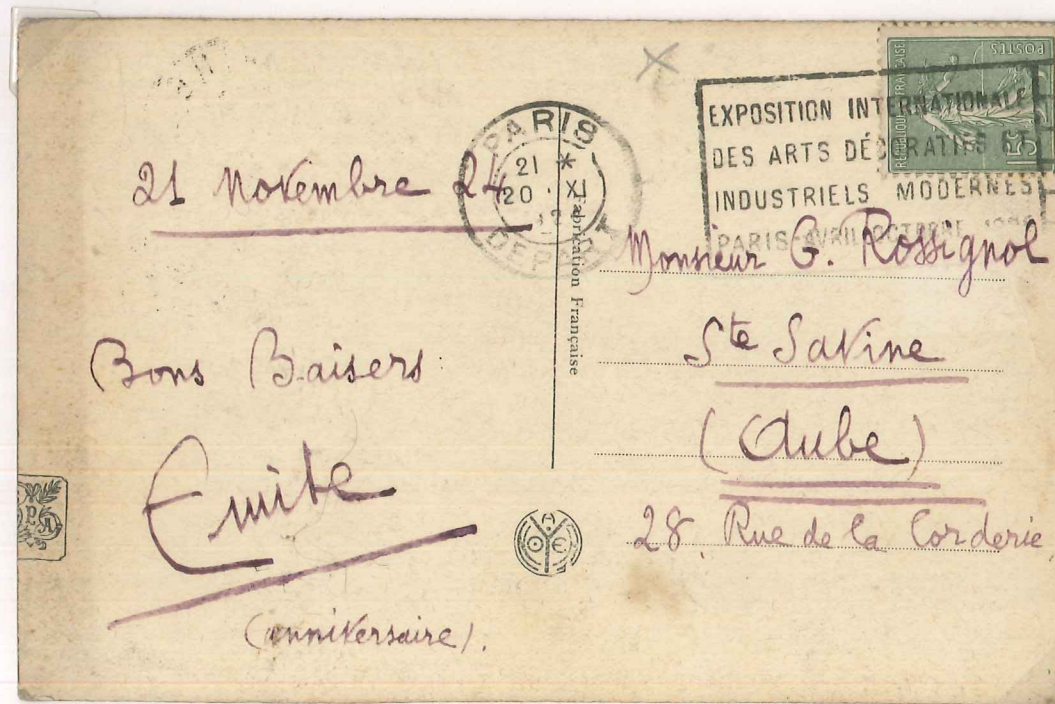 21 Novembre 24
Bons Baisers
Emile
(anniversaire).
PARIS
21 *
20 · XI
DEPART
Fabrication Française
EXPOSITION INTERNATIONALE
DES ARTS DÉCORATIFS ET
INDUSTRIELS MODERNES
PARIS-AVRIL-OCTOBRE
REPUBLIQUE FRANÇAISE
POSTES
15c
Monsieur G. Rossignol
Ste Savine
(Aube)
28, Rue de la Corderie